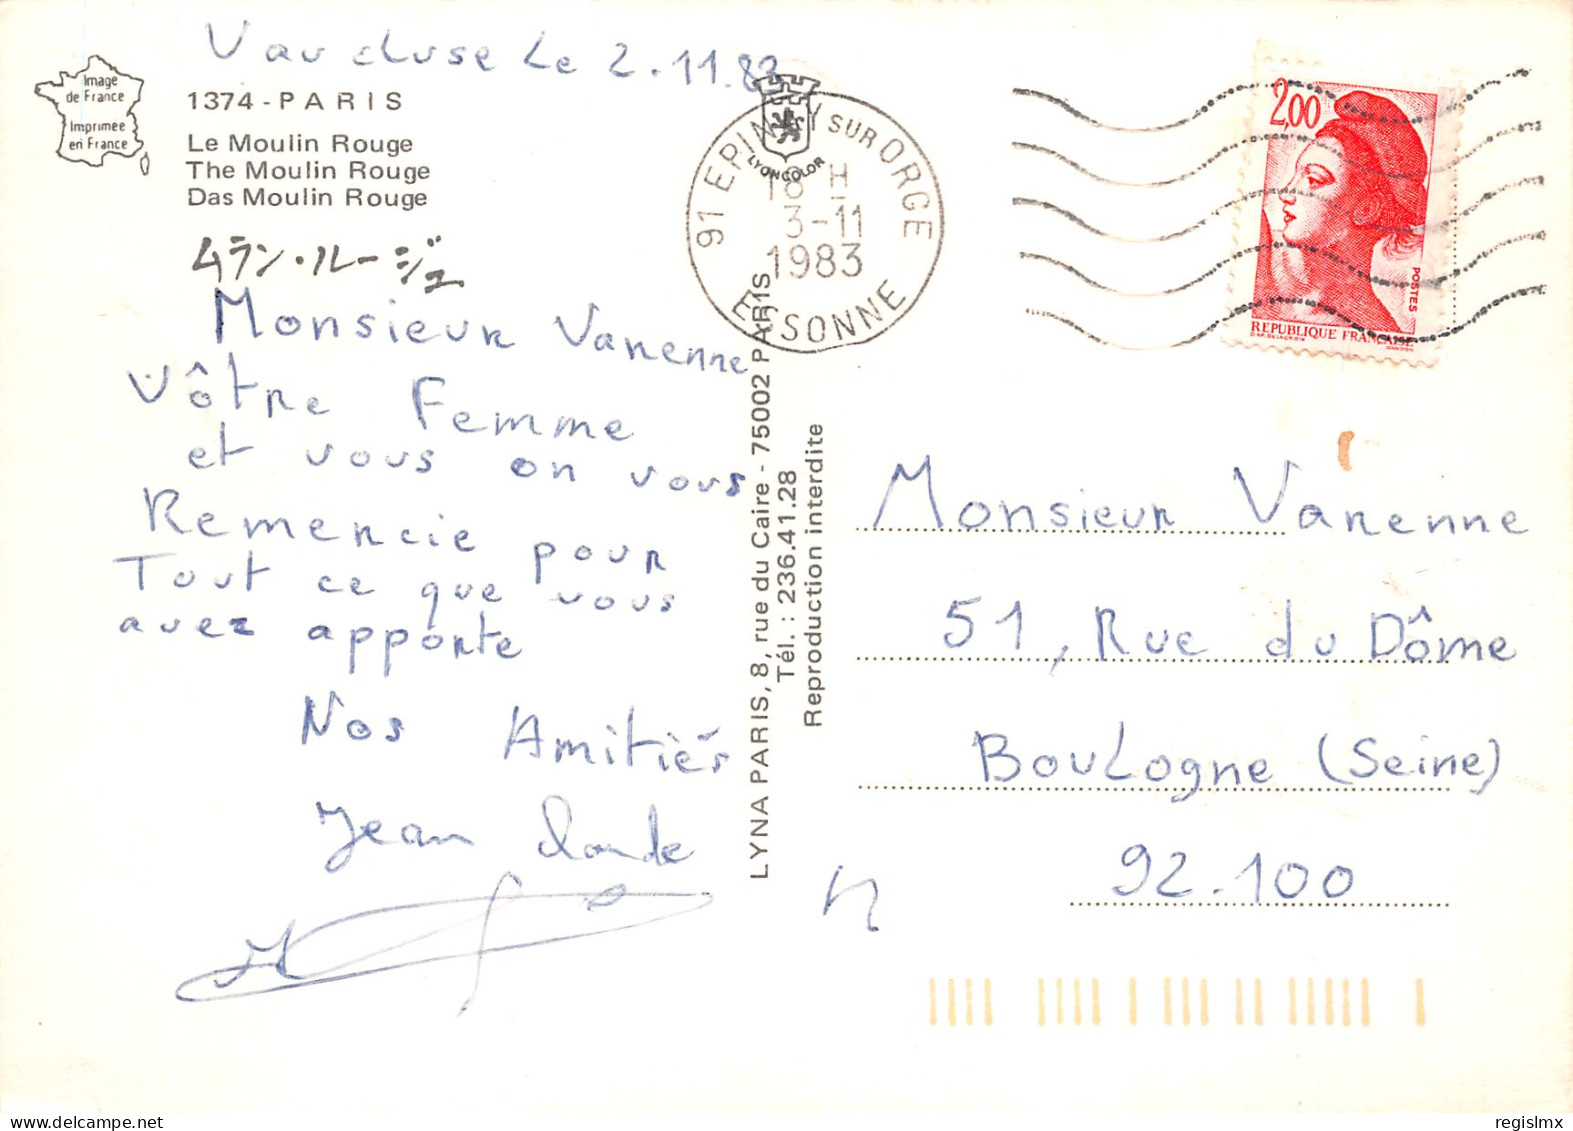 Vaucluse Le 2.11.83
Image
de France
Imprimée
en France
1374 - PARIS
Le Moulin Rouge
The Moulin Rouge
Das Moulin Rouge
ムラン・ルージュ
Monsieur Varenne
Vôtre Femme
et vous on vous
Remercie pour
Tout ce que vous
avez apporte
Nos Amitiés
Jean Claude
LYONCOLOR
91 EPINAY SUR ORGE
18 H
3-11
1983
ESSONNE
LYNA PARIS, 8, rue du Caire - 75002 PARIS
Tél. : 236.41.28
Reproduction interdite
2,00
POSTES
REPUBLIQUE FRANÇAISE
Monsieur Varenne
51, Rue du Dôme
Boulogne (Seine)
92.100
regislmx